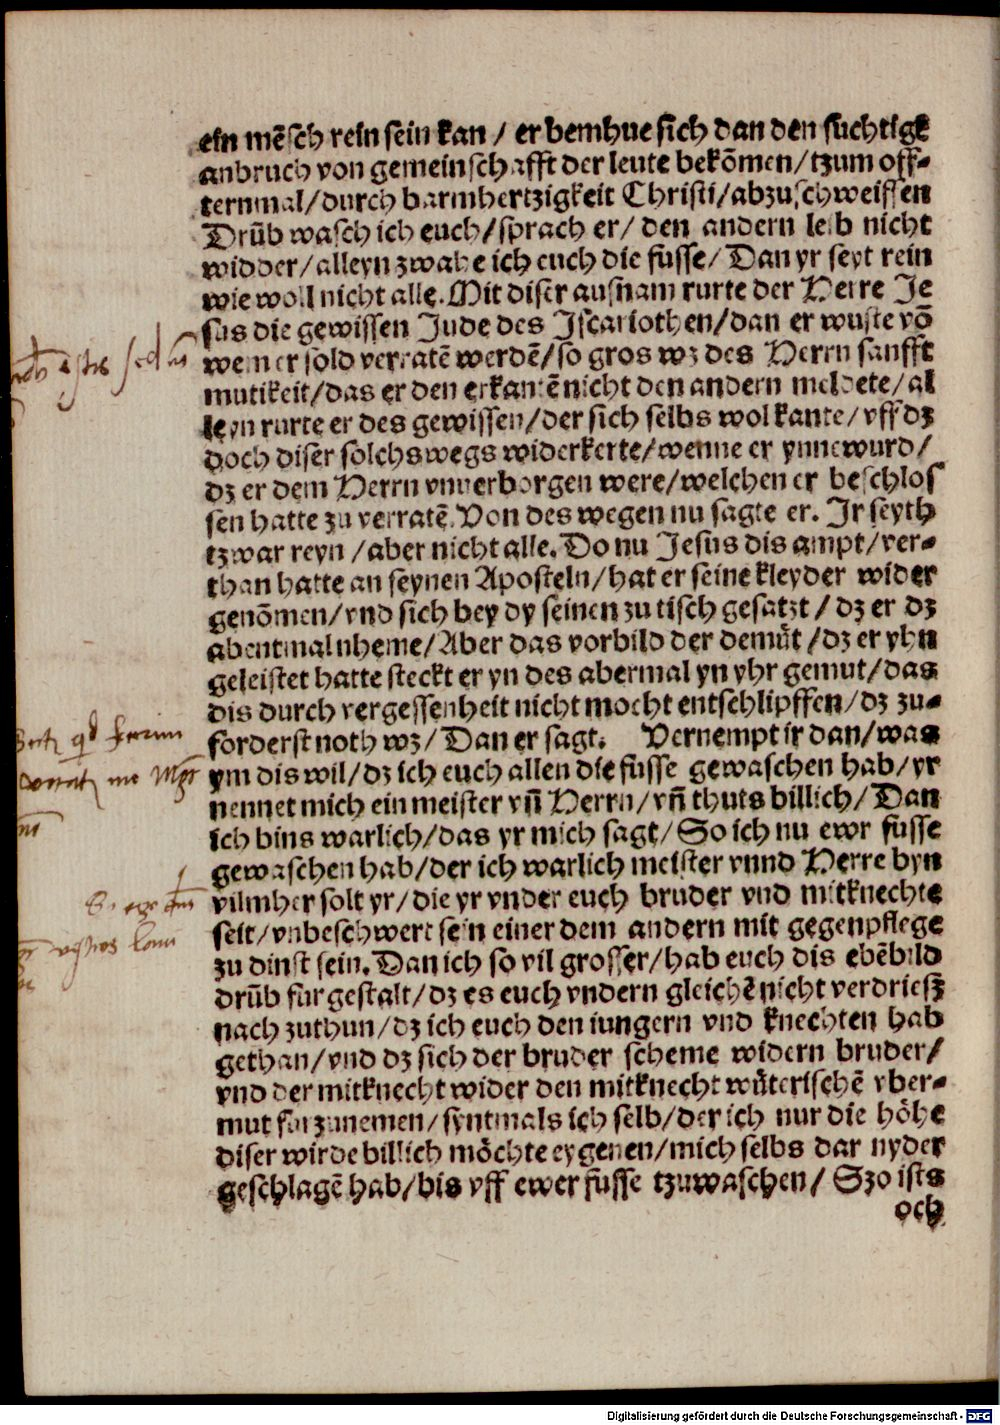 ein mēsch rein sein kan / er bemhue sich dan den suchtige
anbruch von gemeinschafft der leute bekōmen/tzum off-
ternmal/durch barmhertzigkeit Christi/abzuschweissen
Drūb wasch ich euch/sprach er/ den andern leib nicht
widder/alleyn zwahe ich euch die fusse/ Dan yr seyt rein
wie woll nicht alle. Mit diser ausnam rurte der Herre Je
sus die gewissen Jude des Jscariothen/dan er wuste vō
wem er sold verratē werdē/so gros wz des Herrn sanfft
mutikeit/das er den erkantē nicht den andern meldete/al
leyn rurte er des gewissen/der sich selbs wol kante/vff dz
doch diser solchs wegs widerkerte/wenne er ynne wurd/
dz er dem Herrn vnuerborgen were/welchen er beschlos
sen hatte zu verratē. Von des wegen nu sagte er. Jr seyth
tzwar reyn /aber nicht alle. Do nu Jesus dis ampt/ver-
than hatte an seynen Aposteln/hat er seine kleyder wider
genōmen/vnd sich bey dy seinen zu tisch gesatzt / dz er dz
abentmal nheme/Aber das vorbild der demüt /dz er yhn
geleistet hatte steckt er yn des abermal yn yhr gemut/das
dis durch vergessenheit nicht mocht entschlipffen/dz zu-
forderst noth wz/ Dan er sagt. Vernempt ir dan/was
ym dis wil/dz ich euch allen die fusse gewaschen hab/yr
nennet mich ein meister vn̄ Herrn/vn̄ thuts billich/Dan
ich bins warlich/das yr mich sagt/So ich nu ewr fusse
gewaschen hab/der ich warlich meister vnnd Herre byn
vilmher solt yr/die yr vnder euch bruder vnd mitknechte
seit/vnbeschwert sein einer dem andern mit gegenpflege
zu dinst sein. Dan ich so vil grosser/hab euch dis ebēbild
drūb fur gestalt/dz es euch vndern gleichē nicht verdriesz
nach zuthun/dz ich euch den iungern vnd knechten hab
gethan/vnd dz sich der bruder scheme widern bruder/
vnd der mitknecht wider den mitknecht wüterischē vber-
mut furzunemen/syntmals ich selb/der ich nur die höhe
diser wirde billich möchte eygenen/mich selbs dar nyder
geschlagē hab/bis vff ewer füsse tzuwaschen/ Szo ists
och
Digitalisierung gefördert durch die Deutsche Forschungsgemeinschaft - DFG